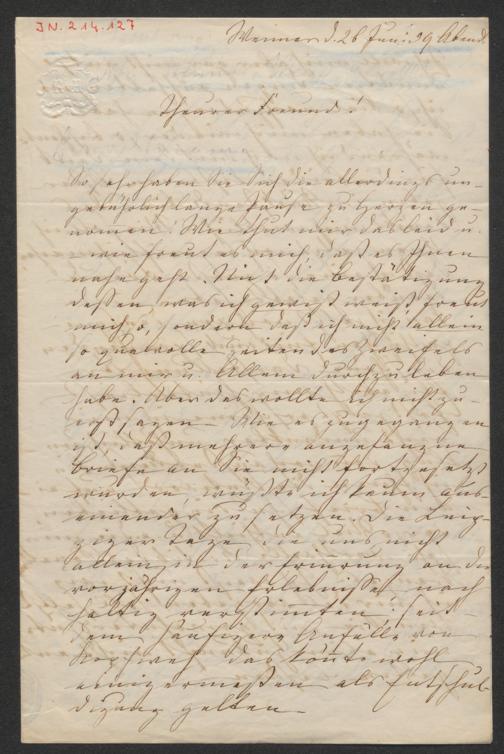 JN. 214.127
Weimar d. 26 Juni 59 Abend.
Theurer Freund!
So sehr haben Sie sich die allerdings un-
gebührlich lange Pause zu Herzen ge-
nommen. Wie thut mir das leid u.
– wie freut es mich, daß es Ihnen
nahe geht. Nicht die Bestätigung
dessen, was ich gewiß weiß freut
mich so, sondern daß ich nicht allein
so qualvolle Zeiten des Zweifels
an mir u. Allem durchzuleben
habe. Aber das wollte ich nicht zu-
erst sagen – Wie es zugegangen
ist, daß mehrere angefangene
Briefe an Sie nicht fortgesetzt
wurden, wüßte ich kaum aus-
einander zu setzen. Die Leip-
ziger Tage die uns nicht
allein in der Erinnerung an die
vorjährigen Erlebnisse nach-
haltig verstimmten: seit-
dem häufigere Anfälle von
Kopfweh das könnte wohl
einigermaßen als Entschul-
digung gelten –